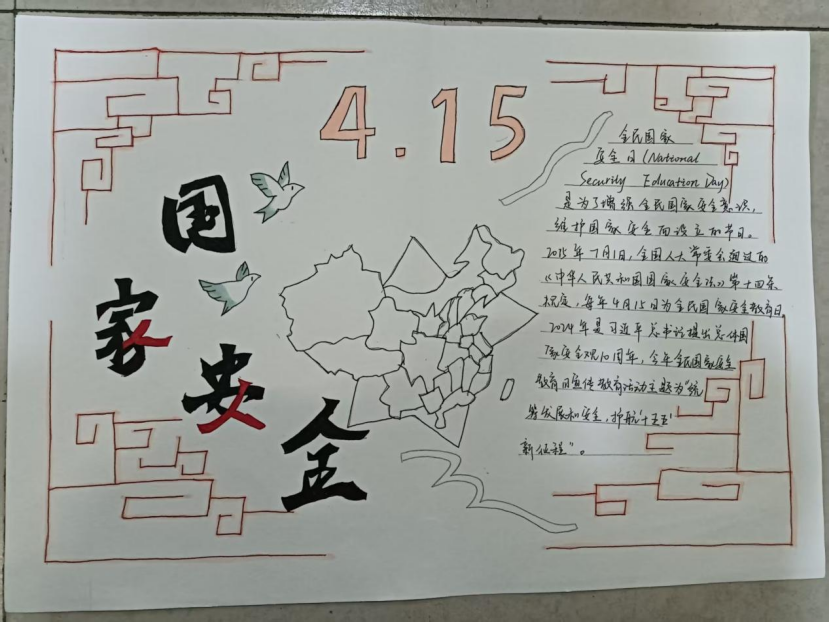 4.15
国
家
安
全
全民国家
安全日(National
Security Education Day)
是为了增强全民国家安全意识,
维护国家安全而设立的节日。
2015年7月1日,全国人大常委会通过的
《中华人民共和国国家安全法》第十四条
规定,每年4月15日为全民国家安全教育日。
2024年是习近平总书记提出总体国
家安全观10周年,今年全民国家安全
教育日宣传教育活动主题为“统
筹发展和安全,护航‘十五五’
新征程”。